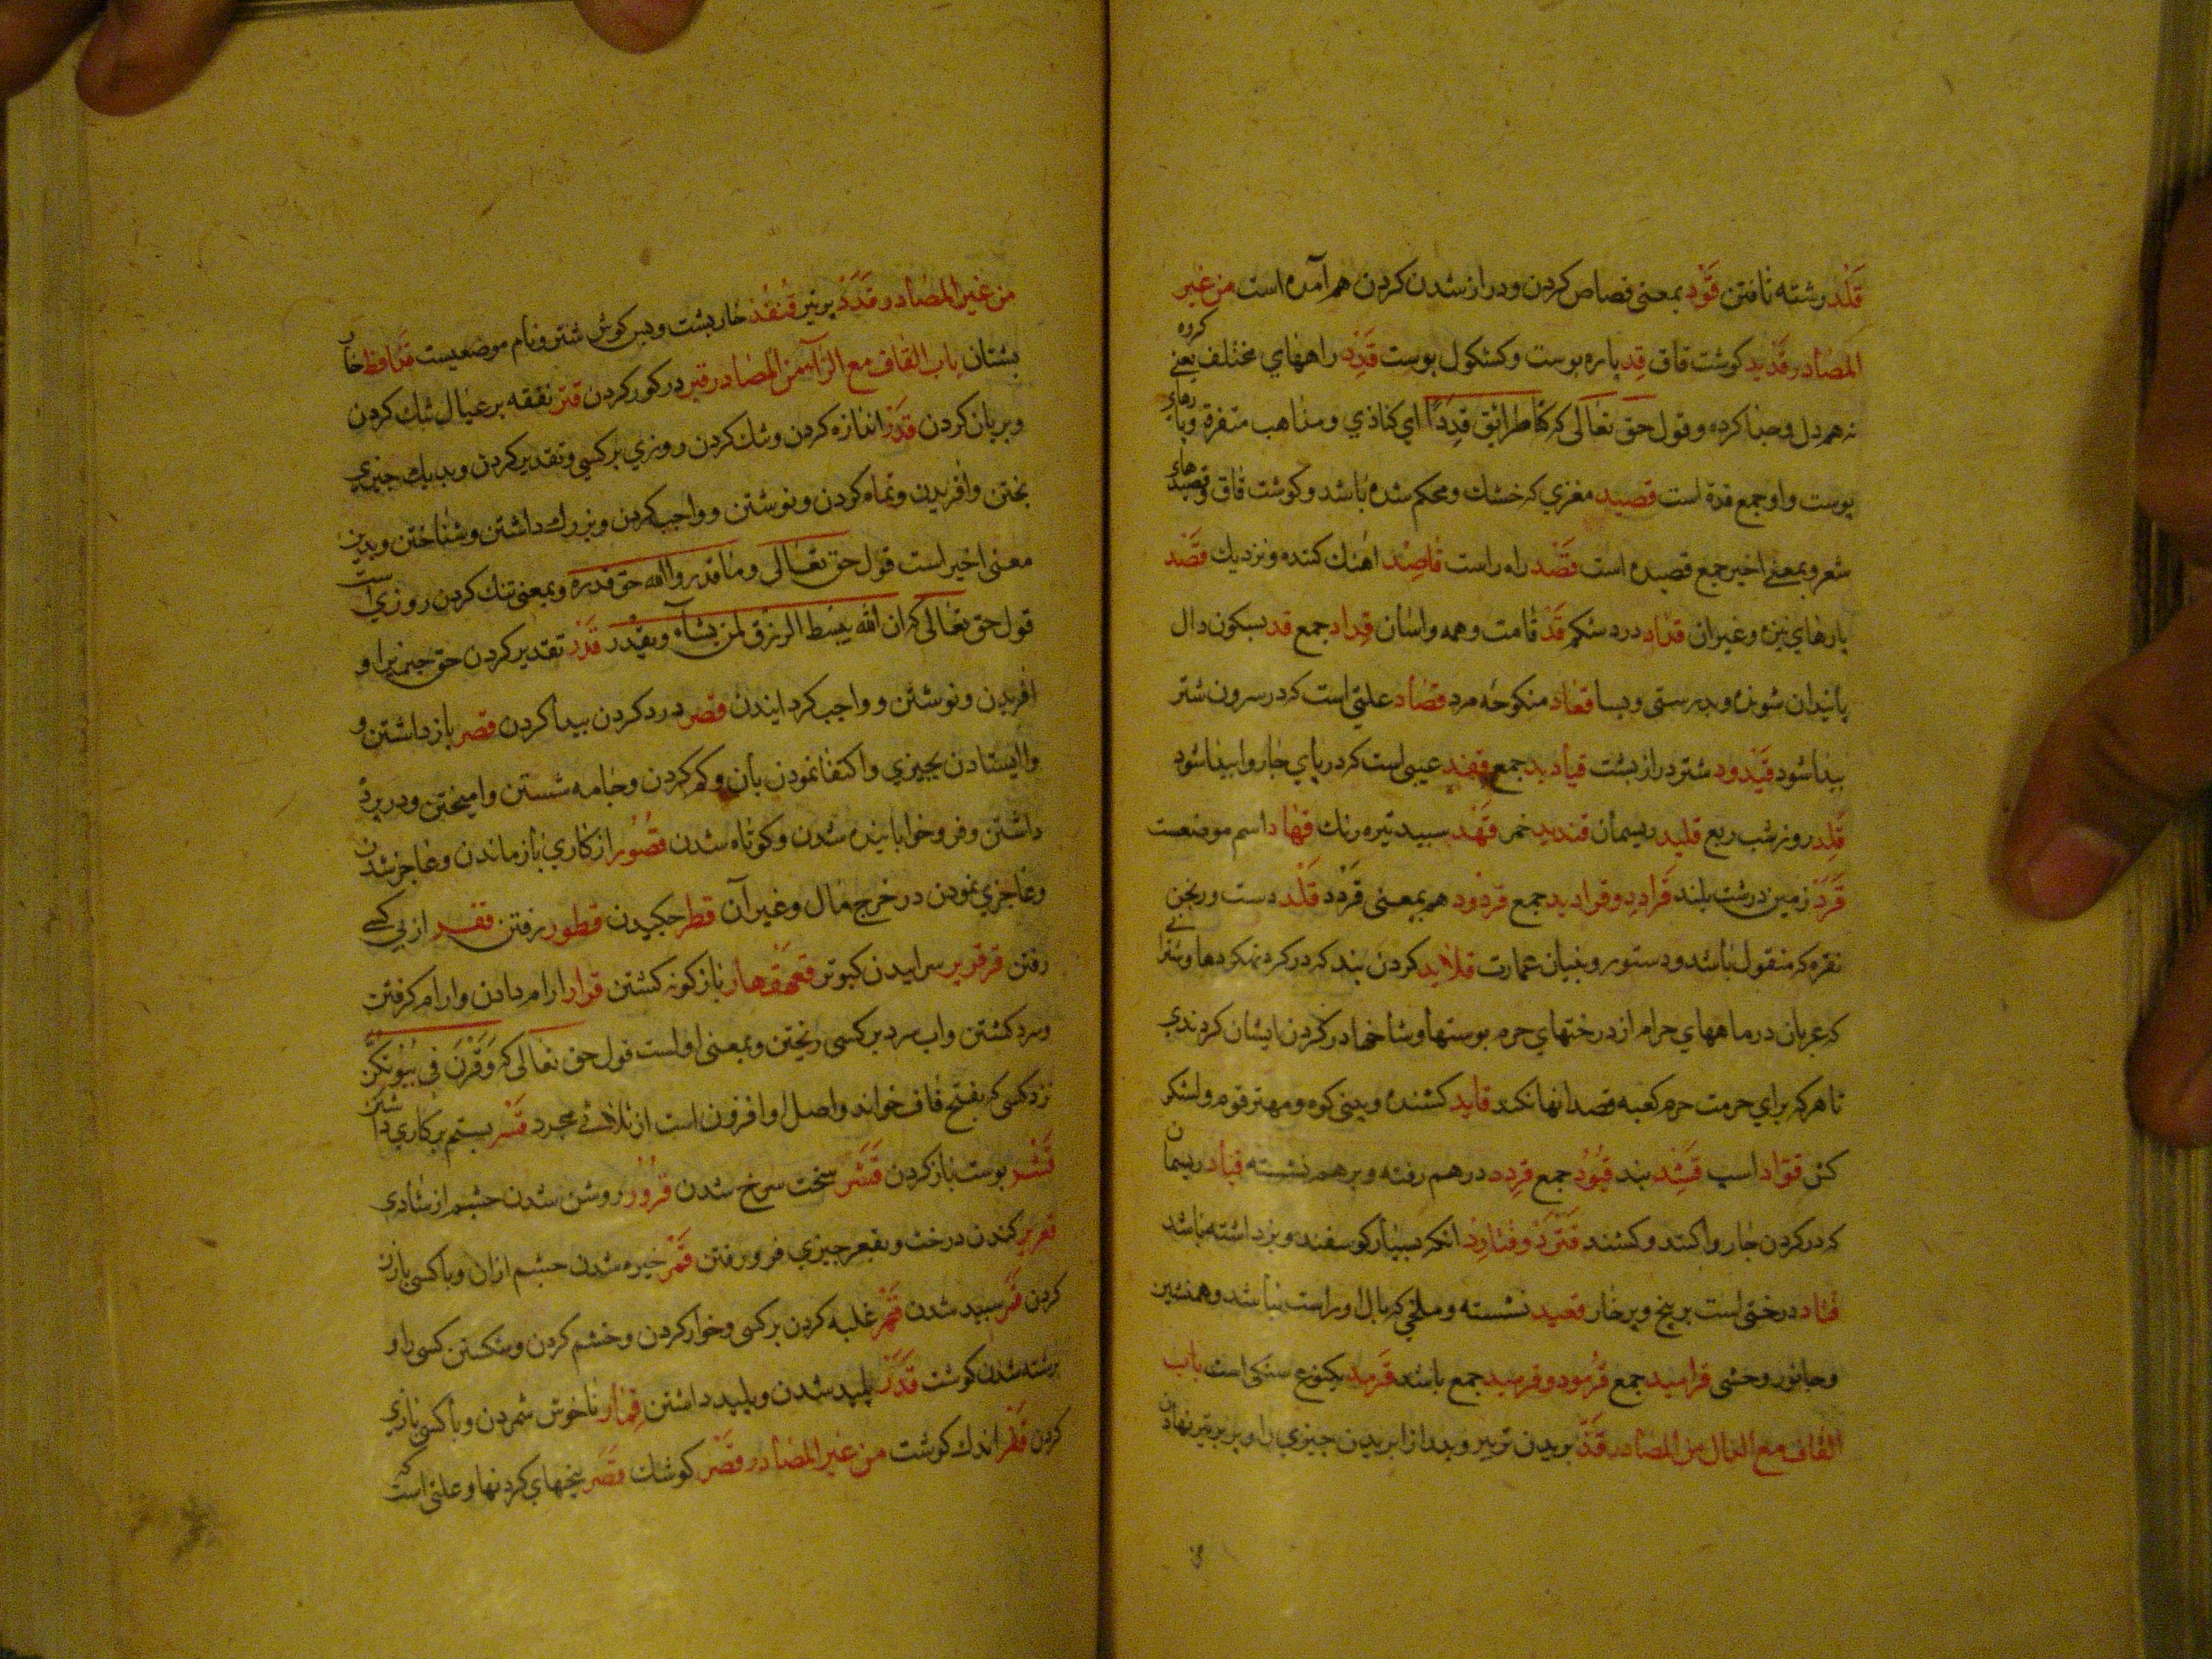 قَلْد رشته تافتن قَوَد بمعنی قصاص کردن و دراز شدن کردن هم آمده است من غیر
المصادر قَدید کوشت قاق قِد پاره پوست و کشکول پوست قِدَد راههای مختلف یعنی کروه
نه هم دل و جدا کرده و قول حق تعالی که کنا طرائق قِدَدًا ای کنا ذوی مذاهب متفرقة و پارهای
پوست و او جمع قدة است قصید مغزی که خشک و محکم شده باشد و کوشت قاق و قصیدهای
شعر و بمعنی اخیر جمع قصیده است قَصْد راه راست قاصِد اهنک کننده و نزدیک قَصْد
پارهای نیزه و غیر ان قداد درد شکم قَدّ قامت و همه و اسان قِداد جمع قد بسکون دال
پانیدان شونده و بدرستی و بسا قعاد منکوحه مرد قصاد علتی است که در سرون شتر
پیدا شود قَیْدود شتر دراز پشت قیادید جمع قفند عیبی است که در پای چاروا پیدا شود
قِلد روز تب ربع قلید ریسمان قندید خمر قَهْد سپید تیره رنک قهاد اسم موضعست
قَرْدَد زمین درشت بلند قَرادِد و قرادید جمع قردود هم بمعنی قَرْدَد قَلْد دست ورنجن
نقره که منقول باشد و دستور و بنیان عمارت قلاید کردن بند که در کردن کردها و شترانی
که عربان در ماههای حرام از درختهای حرم پوستها و شاخها در کردن ایشان کردندی
تا هر که برای حرمت حرم کعبه قصد انها نکند قاید کشنده و بینی کوه و مهتر قوم و لشکر
کش قوّاد اسپ قَیْد بند قُیُود جمع قرِد در هم رفته و بر هم نشسته قیاد ریسمان
که در کردن چاروا کنند و کشند قَثْرَد و قُثارِد انکه بسیار کوسفند و بز داشته باشد
قتاد درختی است بر بیخ و پر خار قعید نشسته و ملخی که بال او راست نباشد و همنشین
و جانور وحشی قرامید جمع قُرمود و قرمید جمع باشد قَرمَد یکنوع سنکی است باب
القاف مع الذال من المصادر قَذّ بریدن تر پیر و بدرازا بریدن چیزی را و پر بر تیر نهادن
من غیر المصادر قُذَذ پر تیر قُنفُذ خار پشت و پس کوش شتر و نام موضعیست قنافذ خار
پشتان باب القاف مع الرّاء من المصادر قبر در کور کردن قتر نفقه بر عیال تنک کردن
و بریان کردن قَدْر اندازه کردن و تنک کردن روزی بر کسی و تقدیر کردن و بدیک چیزی
پختن و افریدن و تمام کردن و نوشتن و واجب کردن و بزرک داشتن و شناختن و بدین
معنی اخیر است قول حق تعالی و ما قدروا الله حق قدره و بمعنی تنک کردن روزی است
قول حق تعالی که ان الله یبسط الرزق لمن یشآء و یقدر قَدَر تقدیر کردن حق چیزیرا و
افریدن و نوشتن و واجب کردانیدن قصر درد کردن پیدا کردن قصر باز داشتن و
وا ایستادن بچیزی و اکتفا نمودن بان و کم کردن و جامه شستن و امیختن و در پرد
داشتن و فرو خوابانیده شدن و کوتاه شدن قُصُور از کاری باز ماندن و عاجز شدن
و عاجزی نمودن در خرج مال و غیر آن قطر چکیدن قطور رفتن قفر از پی کسی
رفتن قرقریر سراییدن کبوتر قهقهار بازکونه کشتن قرار ارام دادن و ارام کرفتن
و سرد کشتن و اب سرد بر کسی ریختن و بمعنی اولست قول حق تعالی که وَقَرْنَ فی بیوتکن
نزد کسی که بفتح قاف خواند و اصل او افزون است از ثلاثی مجرد قَسْر بستم بر کاری داشتن
قَشْر پوست باز کردن قَشَر سخت سرخ شدن قرُور روشن شدن چشم از شادی
قعر بر کندن درخت و بقعر چیزی فرو رفتن قَمَر خیره شدن چشم ازان و با کسی بازی
کردن قَمَر سپید شدن قَهْر غلبه کردن بر کسی و خوار کردن و خشم کردن و شکستن کسی را و
برشته شدن کوشت قَذَر پلید شدن و پلید داشتن قِمار ناخوش شمردن و با کسی بازی
کردن قَفَر اندک کوشت من غیر المصادر قَصْر کوشک قَصَر بیخهای کردنها و علتی است که